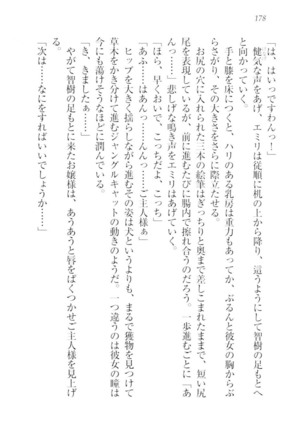 178
「は、はいっですわんっ！」
健気な声をあげ、エミリは従順に机の上から降り、這うようにして智樹の足もとへ
と向かっていく。
手と膝を床につくと、ハリのある乳房は重力もあってか、ぶるんと彼女の胸からぶ
らさがり、その大きさをさらに際立たせる。
お尻の穴に入れられた三本の絵筆はぎっちりと奥まで差しこまれたままで、短い尻
尾を表現しているが、前に進むたびに腸内で擦れ合うのだろう。一歩進むごとに「あ
んっ……」と悲しげな鳴き声をエミリはあげていく。
「ほら、早くおいで、こっちだよ、こっち」
「あふ……はあんっ……んんっ……ご主人様ぁ」
ヒップを大きく揺らしながら進むその姿は犬というよりも、まるで獲物を見つけ、
草木をかき分けて進むジャングルキャットの動きのようだ。一つ違うのは彼女の瞳は
今にも蕩けそうなほどに潤んでいる。
「き、きましたぁ……」
やがて智樹の足もとに来たお嬢様は、あうあうと唇をぱくつかせご主人様を見上げ
る。
「次は……なにをすればいいでしょうか……」